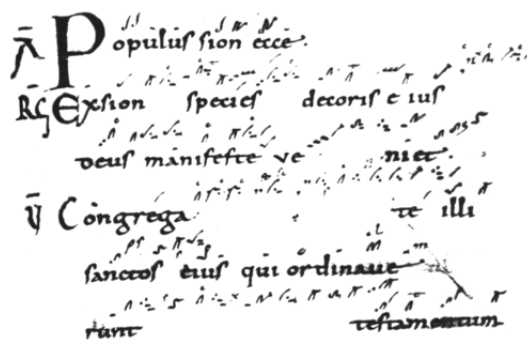 A Populus sion ecce.
RG Exsion species decoris eius
Deus manifeste ve niet.
V Congrega te illi
sanctos eius qui ordinave
runt testamentum